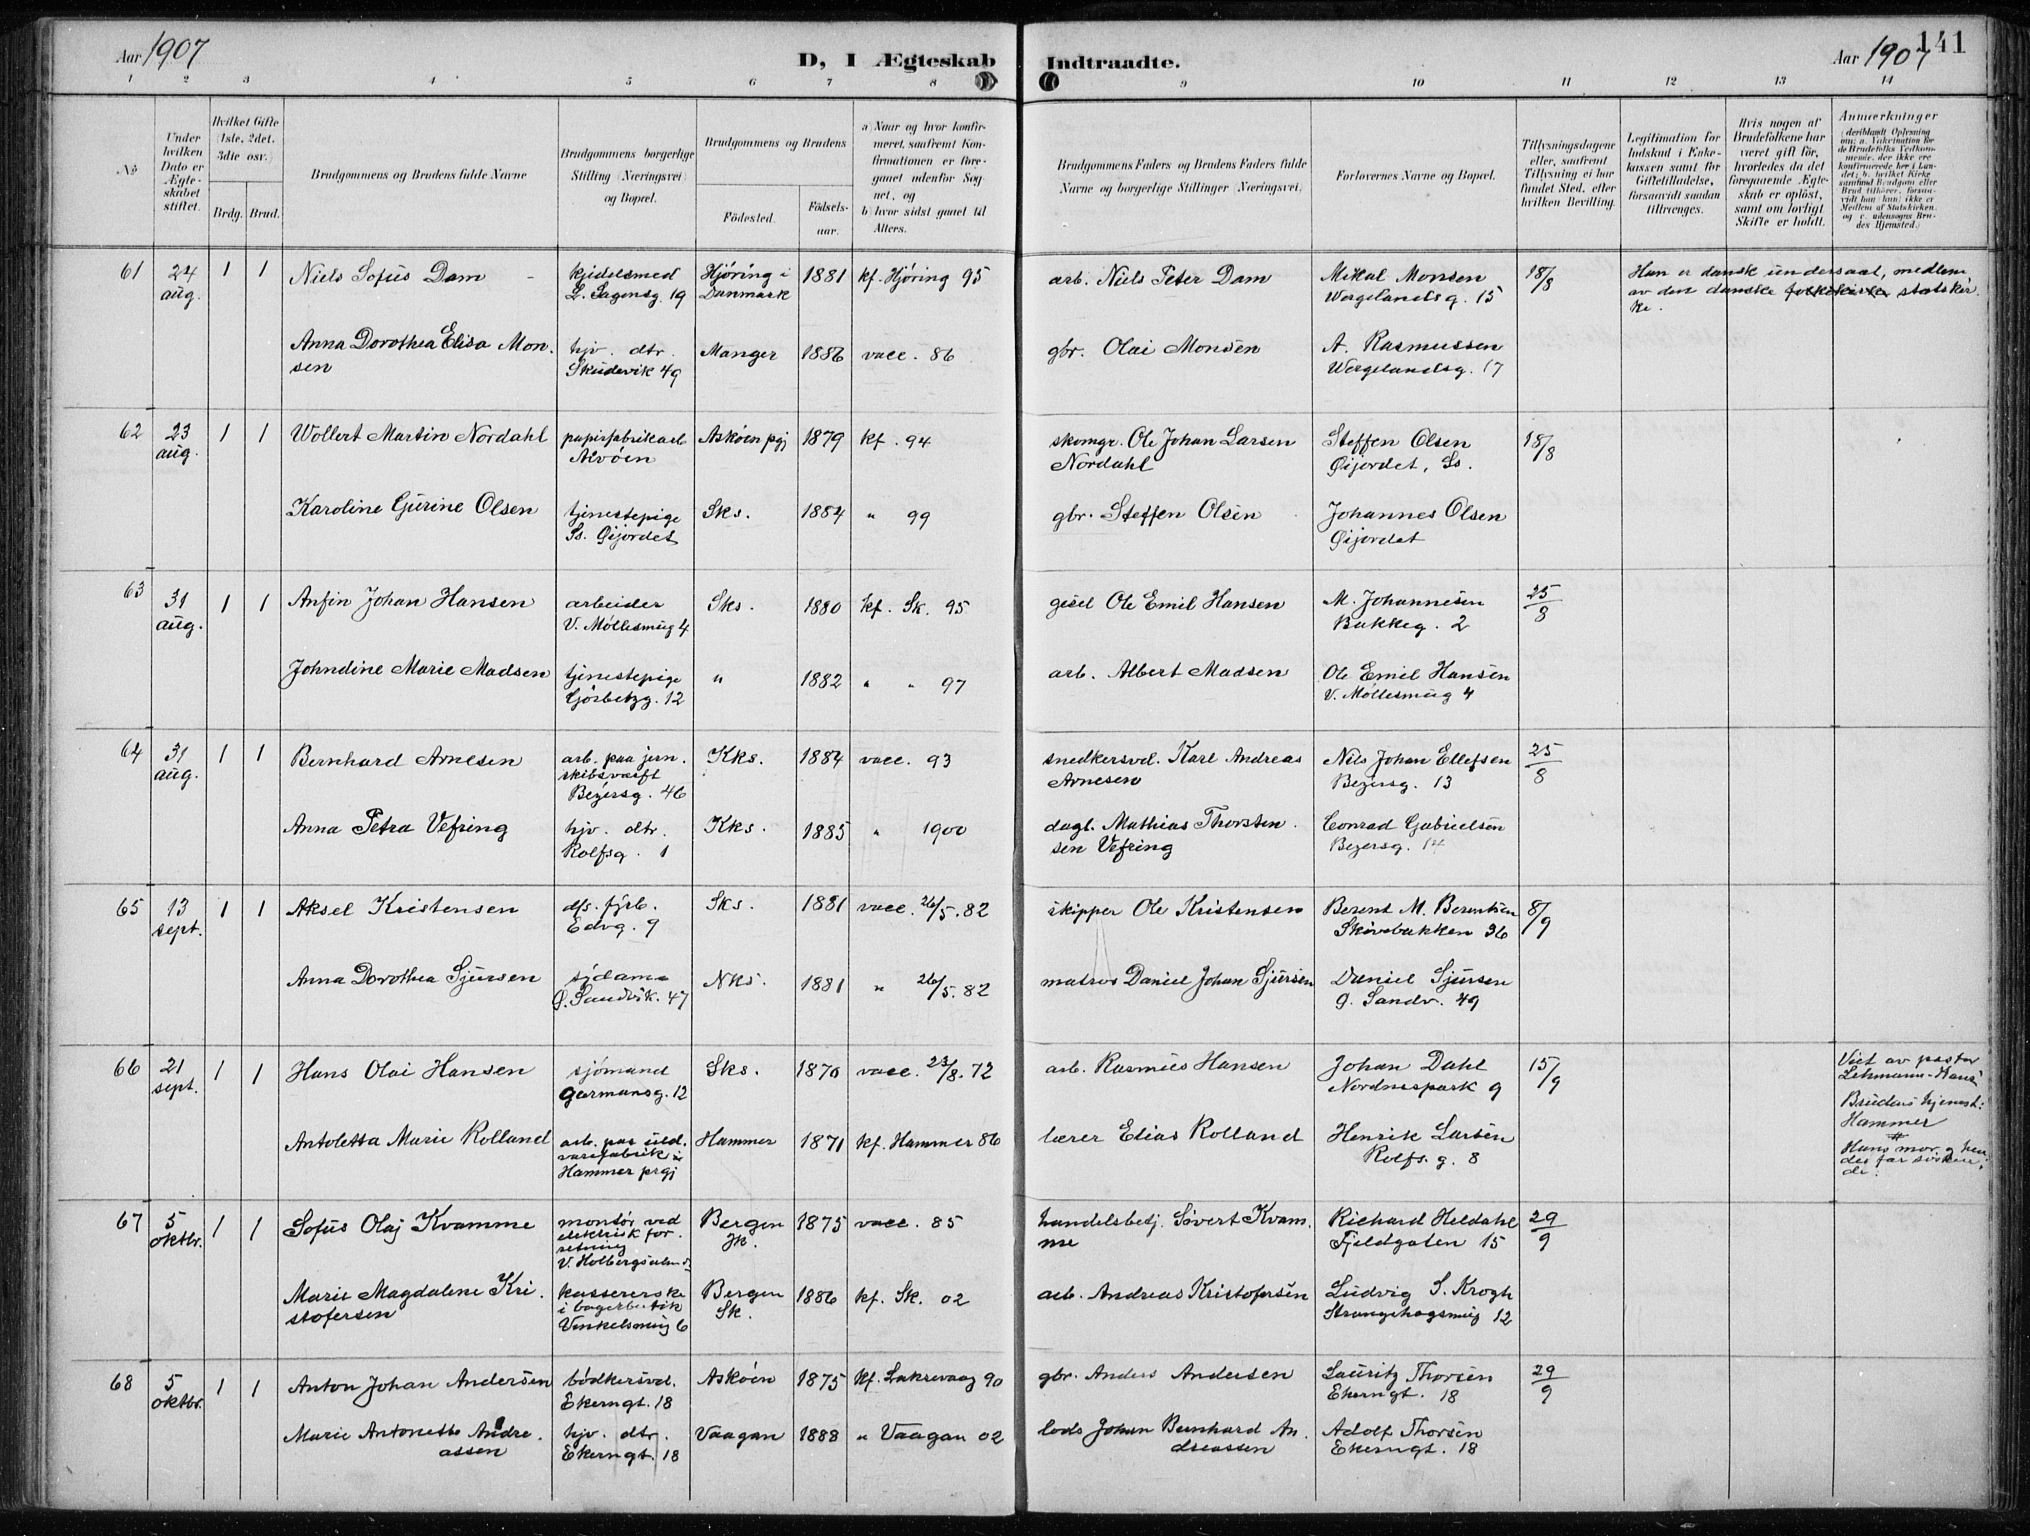 Aar 1907
D, I Ægteskab Indtraadte.
Aar 1907
141
1 2 3 4 5 6 7 8 9 10 11 12 13 14
No
Under hvilken Dato er Ægteskabet stiftet.
Hvilket Gifte (1ste, 2det, 3die osv.)
Brdg. Brud.
Brudgommens og Brudens fulde Navne
Brudgommens borgerlige Stilling (Næringsvei) og Bopæl.
Brudgommens og Brudens
Födested. Födsels-aar.
a) Naar og hvor konfirmeret, saafremt Konfirmationen er foregaaet udenfor Sognet, og
b) hvor sidst gaaet til Alters.
Brudgommens Faders og Brudens Faders fulde Navne og borgerlige Stillinger (Næringsvei).
Forlovernes Navne og Bopæl.
Tillysningsdagene eller, saafremt Tillysning ei har fundet Sted, efter hvilken Bevilling.
Legitimation for Indskud i Enkekassen samt for Giftetilladelse, forsaavidt saadan tiltrænges.
Hvis nogen af Brudefolkene har været gift før, hvorledes da det foregaaende Ægteskab er opløst, samt om lovligt Skifte er holdt.
Anmerkninger
(deriblandt Oplysning om: a. Vakcination for de Brudefolks Vedkommende, der ikke ere konfirmerede her i Landet; b. hvilket Kirkesamfund Brudgom eller Brud tilhører, forsaavidt han (hun) ikke er Medlem af Statskirken, og c. udensogns Brudes Hjemsted.)
61 24 aug. 1 1 Niels Sofus Dam kjedelsmed L. Sagensg. 19 Hjöring i Danmark 1881 kf. Hjöring 95 arb. Niels Peter Dam Mikal Monsen Wergelandsg. 15 18/8 Han er dansk undersaat, medlem av den danske folkekirke statskirke.
Anna Dorothea Elisa Monsen hjv. dtr. Skudevik 49 Manger 1886 vacc. 86 gbr. Olai Monsen A. Rasmussen Wergelandsg. 17
62 23 aug. 1 1 Wollert Martin Nordahl papirfabrikarb Alvöen Asköen pgj 1879 kf. 94 skomgr. Ole Johan Larsen Nordahl Steffen Olsen Øijordet, Ss. 18/8
Karoline Gurine Olsen tjenestepige Ss. Øijordet Sks. 1884 " 99 gbr. Steffen Olsen Johannes Olsen Øijordet
63 31 aug. 1 1 Anfin Johan Hansen arbeider V. Möllesmug 4 Sks. 1880 kf. Sk. 95 gjsel Ole Emil Hansen M. Johannesen Bakkeg. 2 25/8
Johndine Marie Madsen tjenestepige 12 " 1882 " " 97 arb. Albert Madsen Ole Emil Hansen V. Möllesmug 4
64 31 aug. 1 1 Bernhard Arnesen arb. paa jernskibsværft Beyersg. 46 Kks. 1884 vacc. 93 snedkersvd. Karl Andreas Arnesen Nils Johan Ellefsen Beyersg. 13 25/8
Anna Petra Vefring hjv. dtr. Rolfsg. 1 Kks. 1885 " 1900 dagl. Mathias Thorstensen Vefring Conrad Gabrielsen Beyersg. 14
65 13 sept. 1 1 Aksel Kristensen dfs. fyrb. Edvg. 9 Sks. 1881 vacc. 26/5. 82 skipper Ole Kristensen Berent M. Berentsen Skivebakken 36 8/9
Anna Dorothea Sjursen sydame Ø. Sandvik. 47 Nks. 1881 " 26/5. 82 matros Daniel Johan Sjursen Daniel Sjursen Ø. Sandv. 49
66 21 sept. 1 1 Hans Olai Hansen sjömand Garmansg. 12 Sks. 1870 vacc. 23/8. 72 arb. Rasmus Hansen Johan Dahl Nordnespark 9 15/9 Viet av pastor Lehmann-Hans. Brudens hjemst: Hammer Hans mor og hendes far søskende.
Antoletta Marie Rolland arb. paa uldvarefabrik i Hammer prgj Hammer 1871 kf. Hammer 86 lærer Elias Rolland Henrik Larsen Rolfs. g. 8
67 5 oktbr. 1 1 Sofus Olaj Kvamme montör ved elektrisk forretning V. Holbergsalm. Bergen Jk. 1875 vacc. 85 handelsbetj. Sövert Kvamme Richard Heldahl Fjeldgaten 15 29/9
Marie Magdalene Kristofersen kassererske i bagerbutik Vinkelsmug 6 Bergen Sk. 1886 kf. Sk. 02 arb. Andreas Kristofersen Ludvig S. Krogh Strangehagsmug 12
68 5 oktbr. 1 1 Anton Johan Andersen bödkersvd. Ekerngt. 18 Asköen 1875 kf. Laksevaag 90 gbr. Anders Andersen Lauritz Thorsen Ekerngt. 18 29/9
Marie Antonette Andreassen hjv. dtr. Ekerngt. 18 Vaagan 1888 " Vaagan 02 lods Johan Bernhard Andreassen Adolf Thorsen Ekerngt. 18